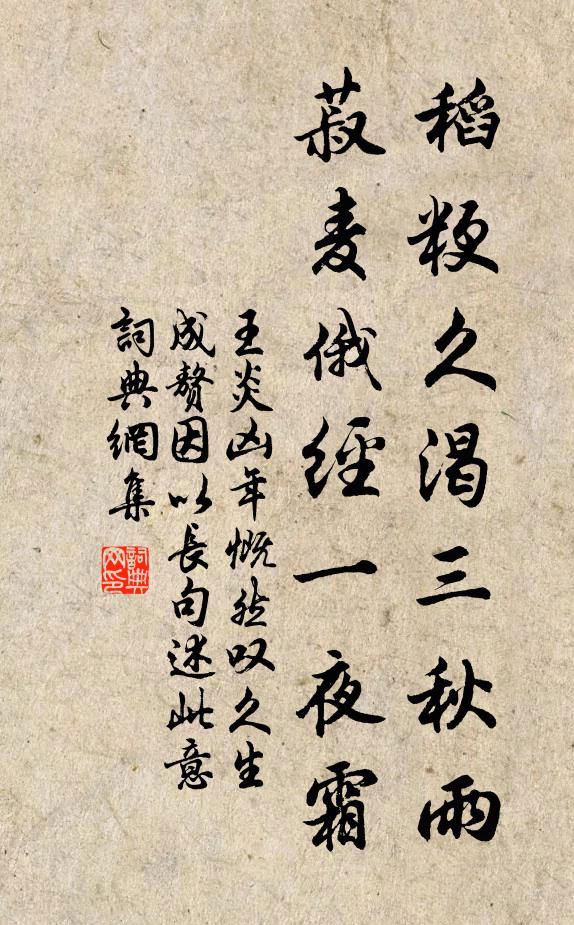 稻粳久渴三秋雨
菽麦俄經一夜霜
王炎凶年慨然叹久生
成赘因以長句述此意
詞典網集
詞典网印